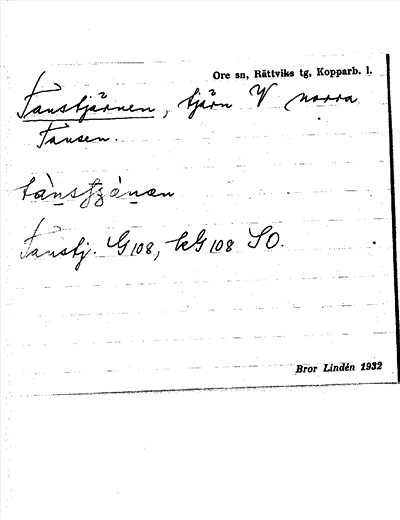 Ore sn, Rättviks tg, Kopparb. l.
Tanstjärnen, tjärn V norra
Tansen.
Tanstj. G 108, kG 108 SO.
Bror Lindén 1932